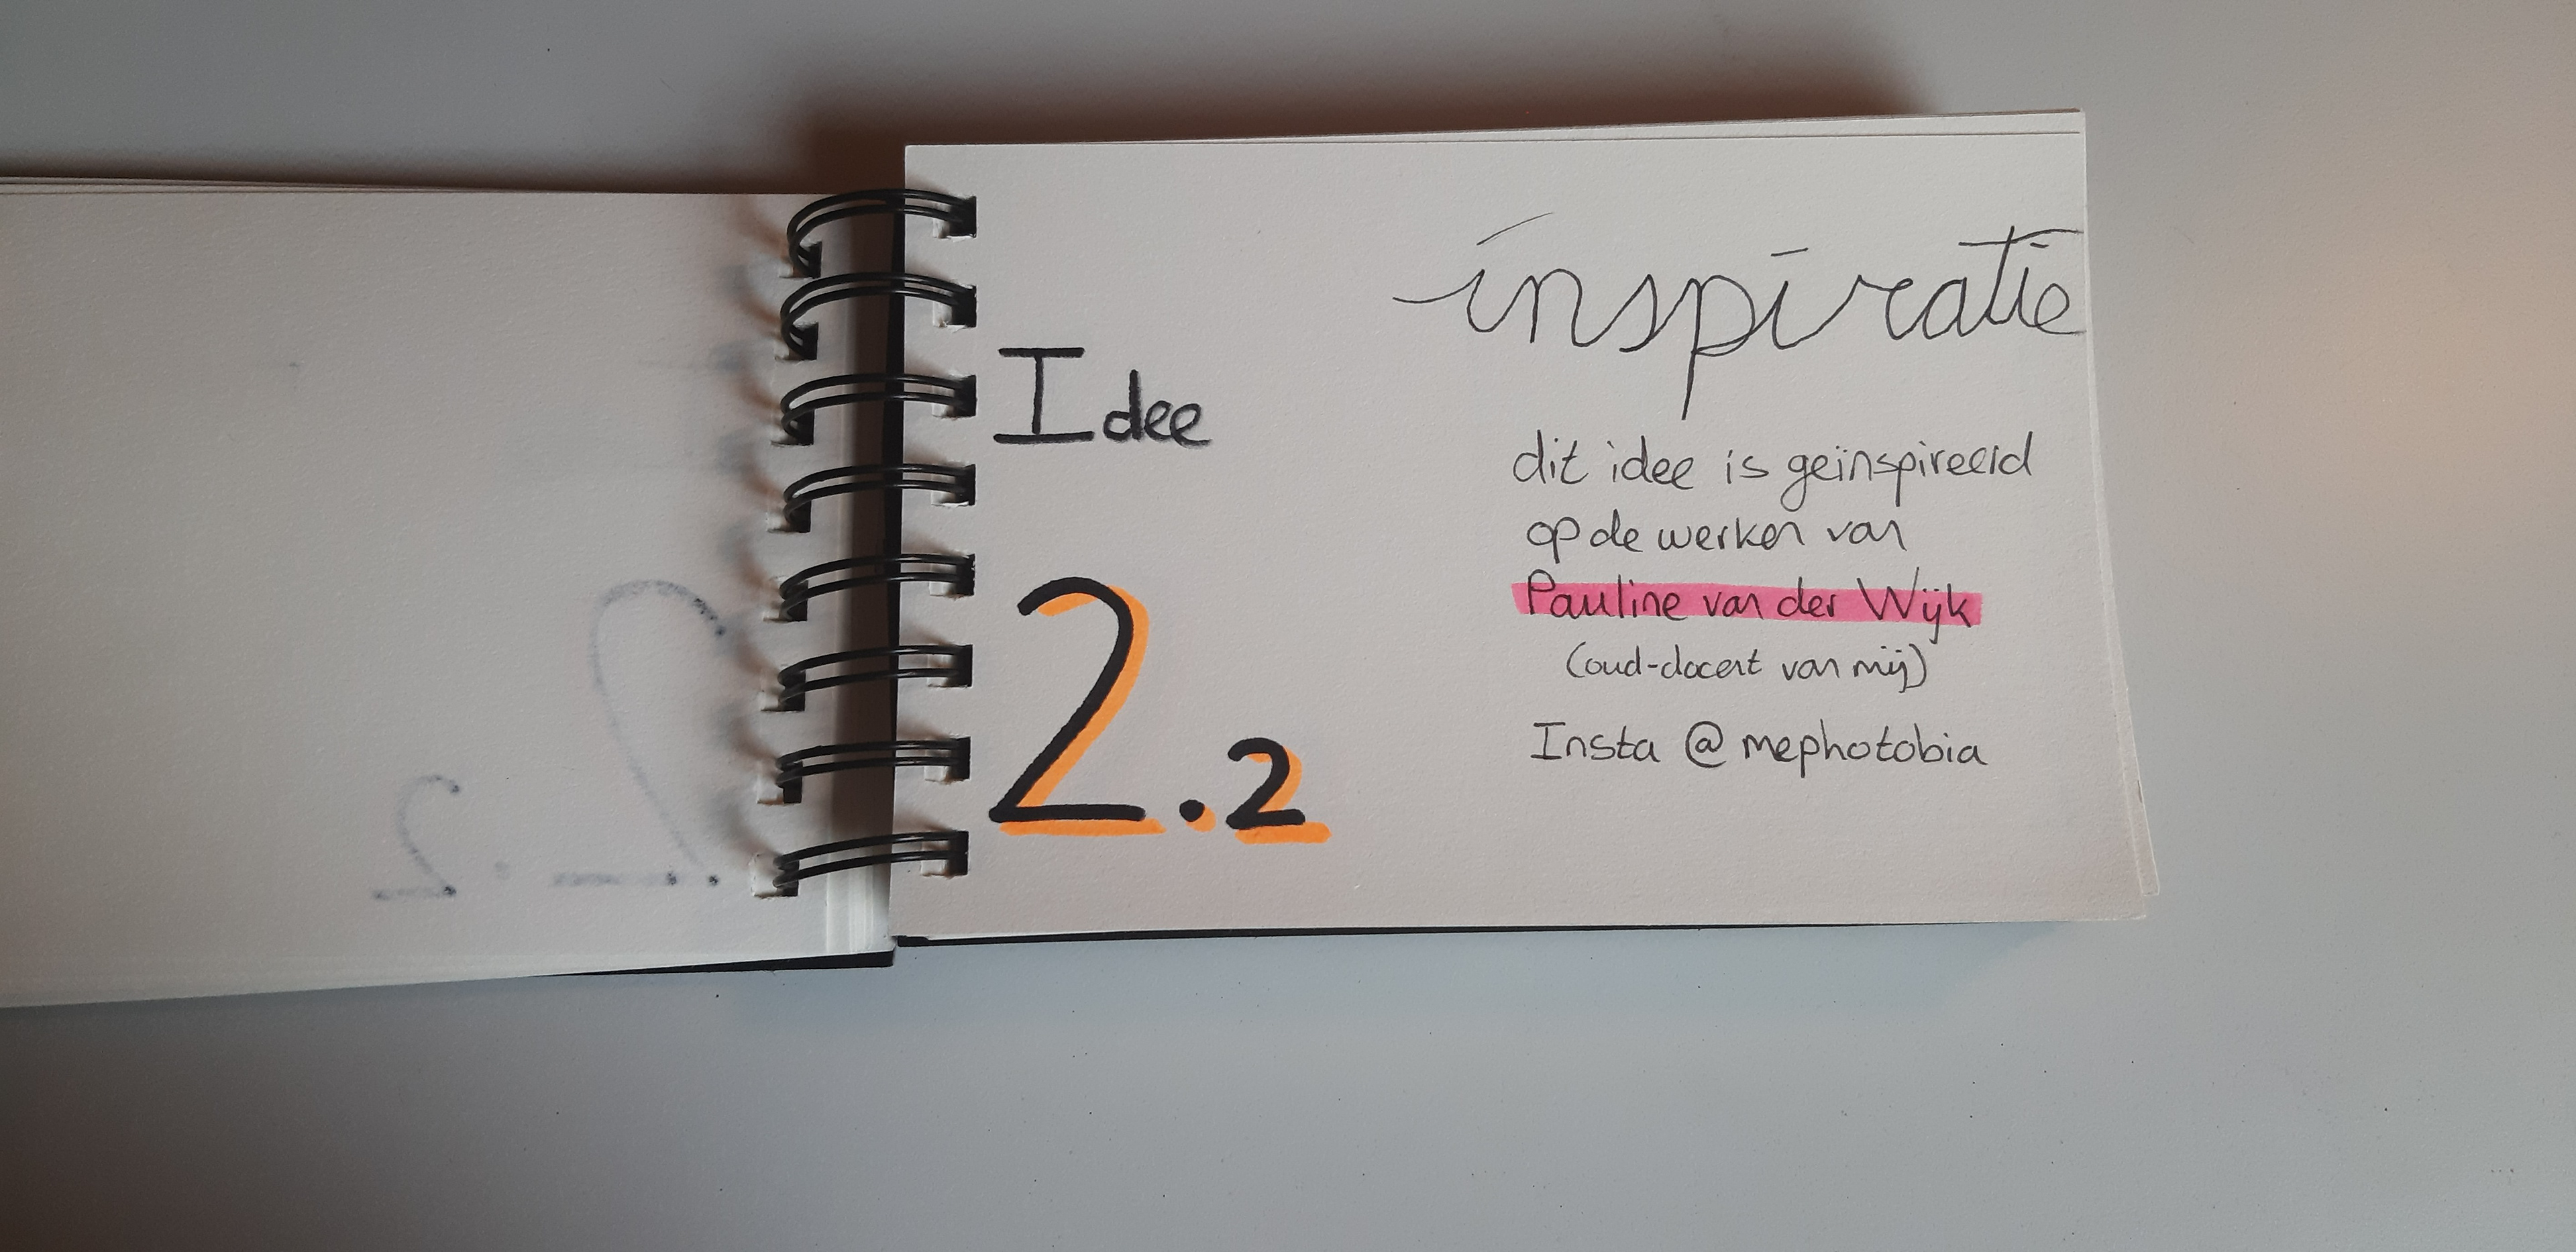 Idee
2.2
inspiratie
dit idee is geïnspireerd
op de werken van
Pauline van der Wijk
(oud-docent van mij)
Insta @mephotobia